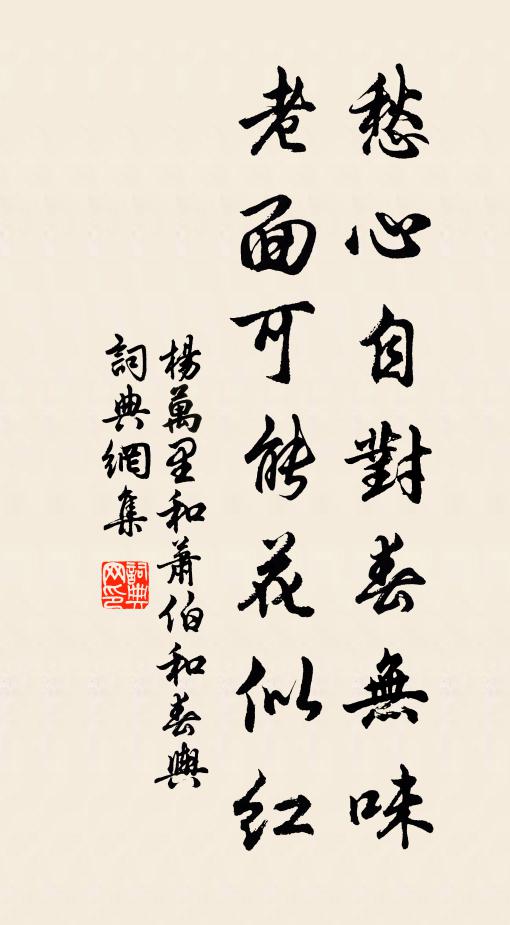 愁心自對春無味
老面可能花似红
楊萬里和蕭伯和春興
詞典網集
詞典网印